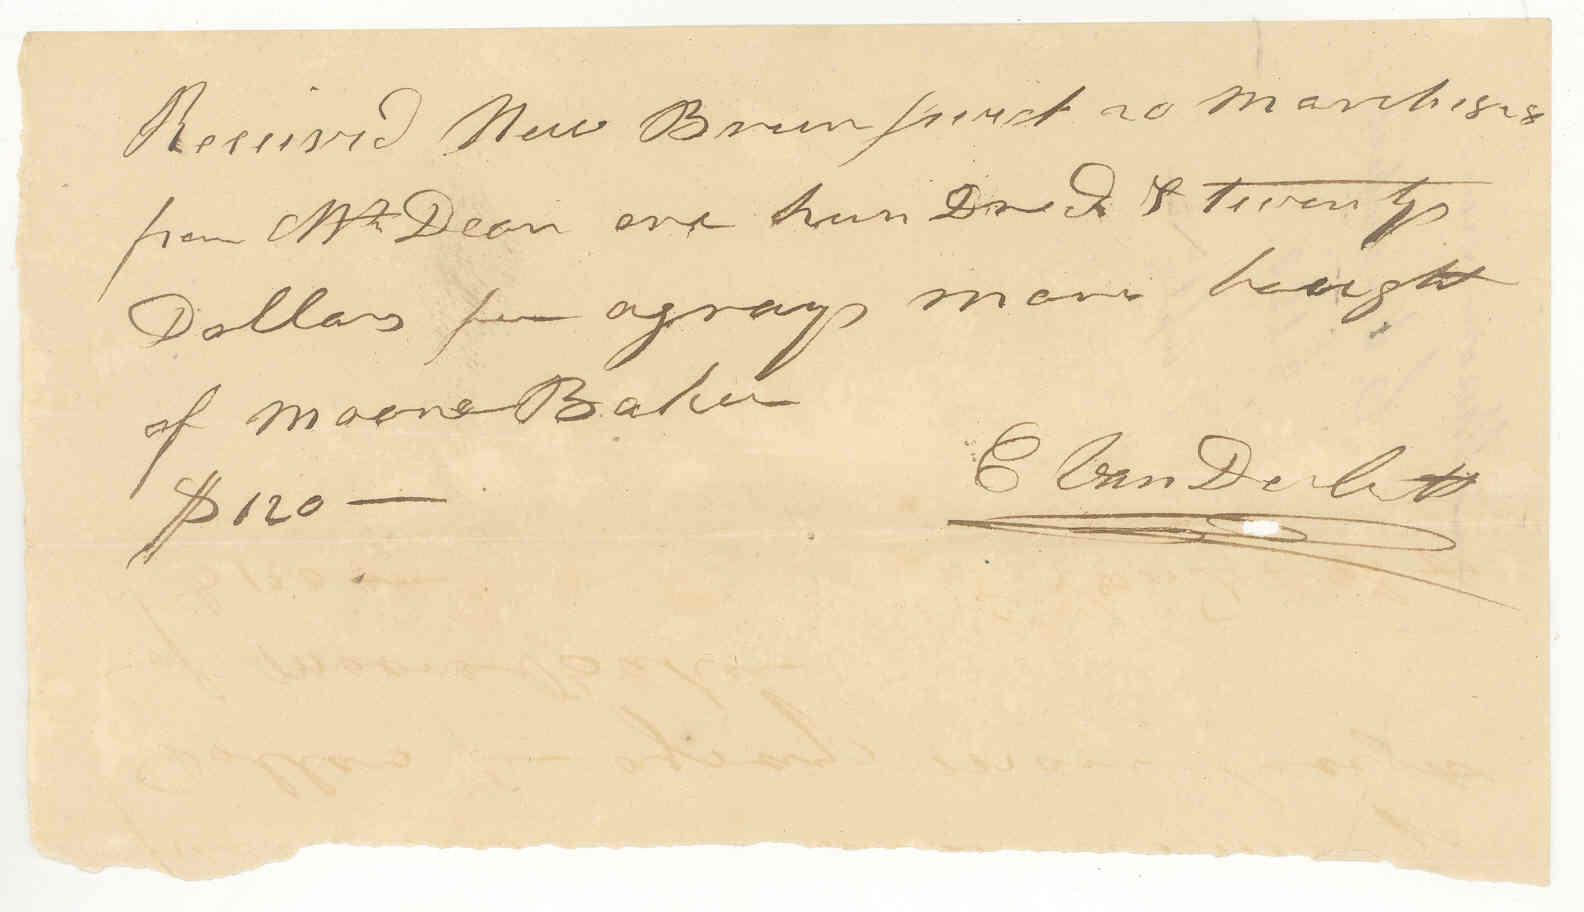 Received New Brunswick 20 March 1828
from Mr Dean one hunDred & twenty
Dollars for a gray mare bought
of Moore Baker
$120 —
C VanDerbilt